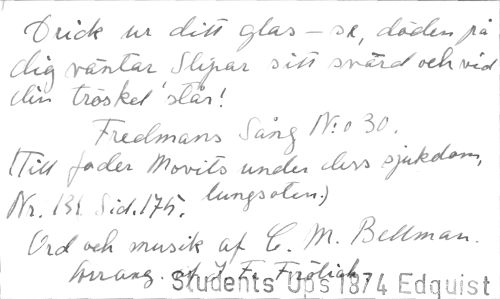 Drick ur ditt glas – se, döden på
dig väntar Slipar sitt svärd och vid
din tröskel står!
Fredmans Sång N:o 30.
(Till fader Movits under dess sjukdom,
lungsoten.)
Nr. 131 Sid. 175.
Ord och musik af C. M. Bellman.
arrang. af J. Fr. Frölich
Students Ups 1874 Edquist